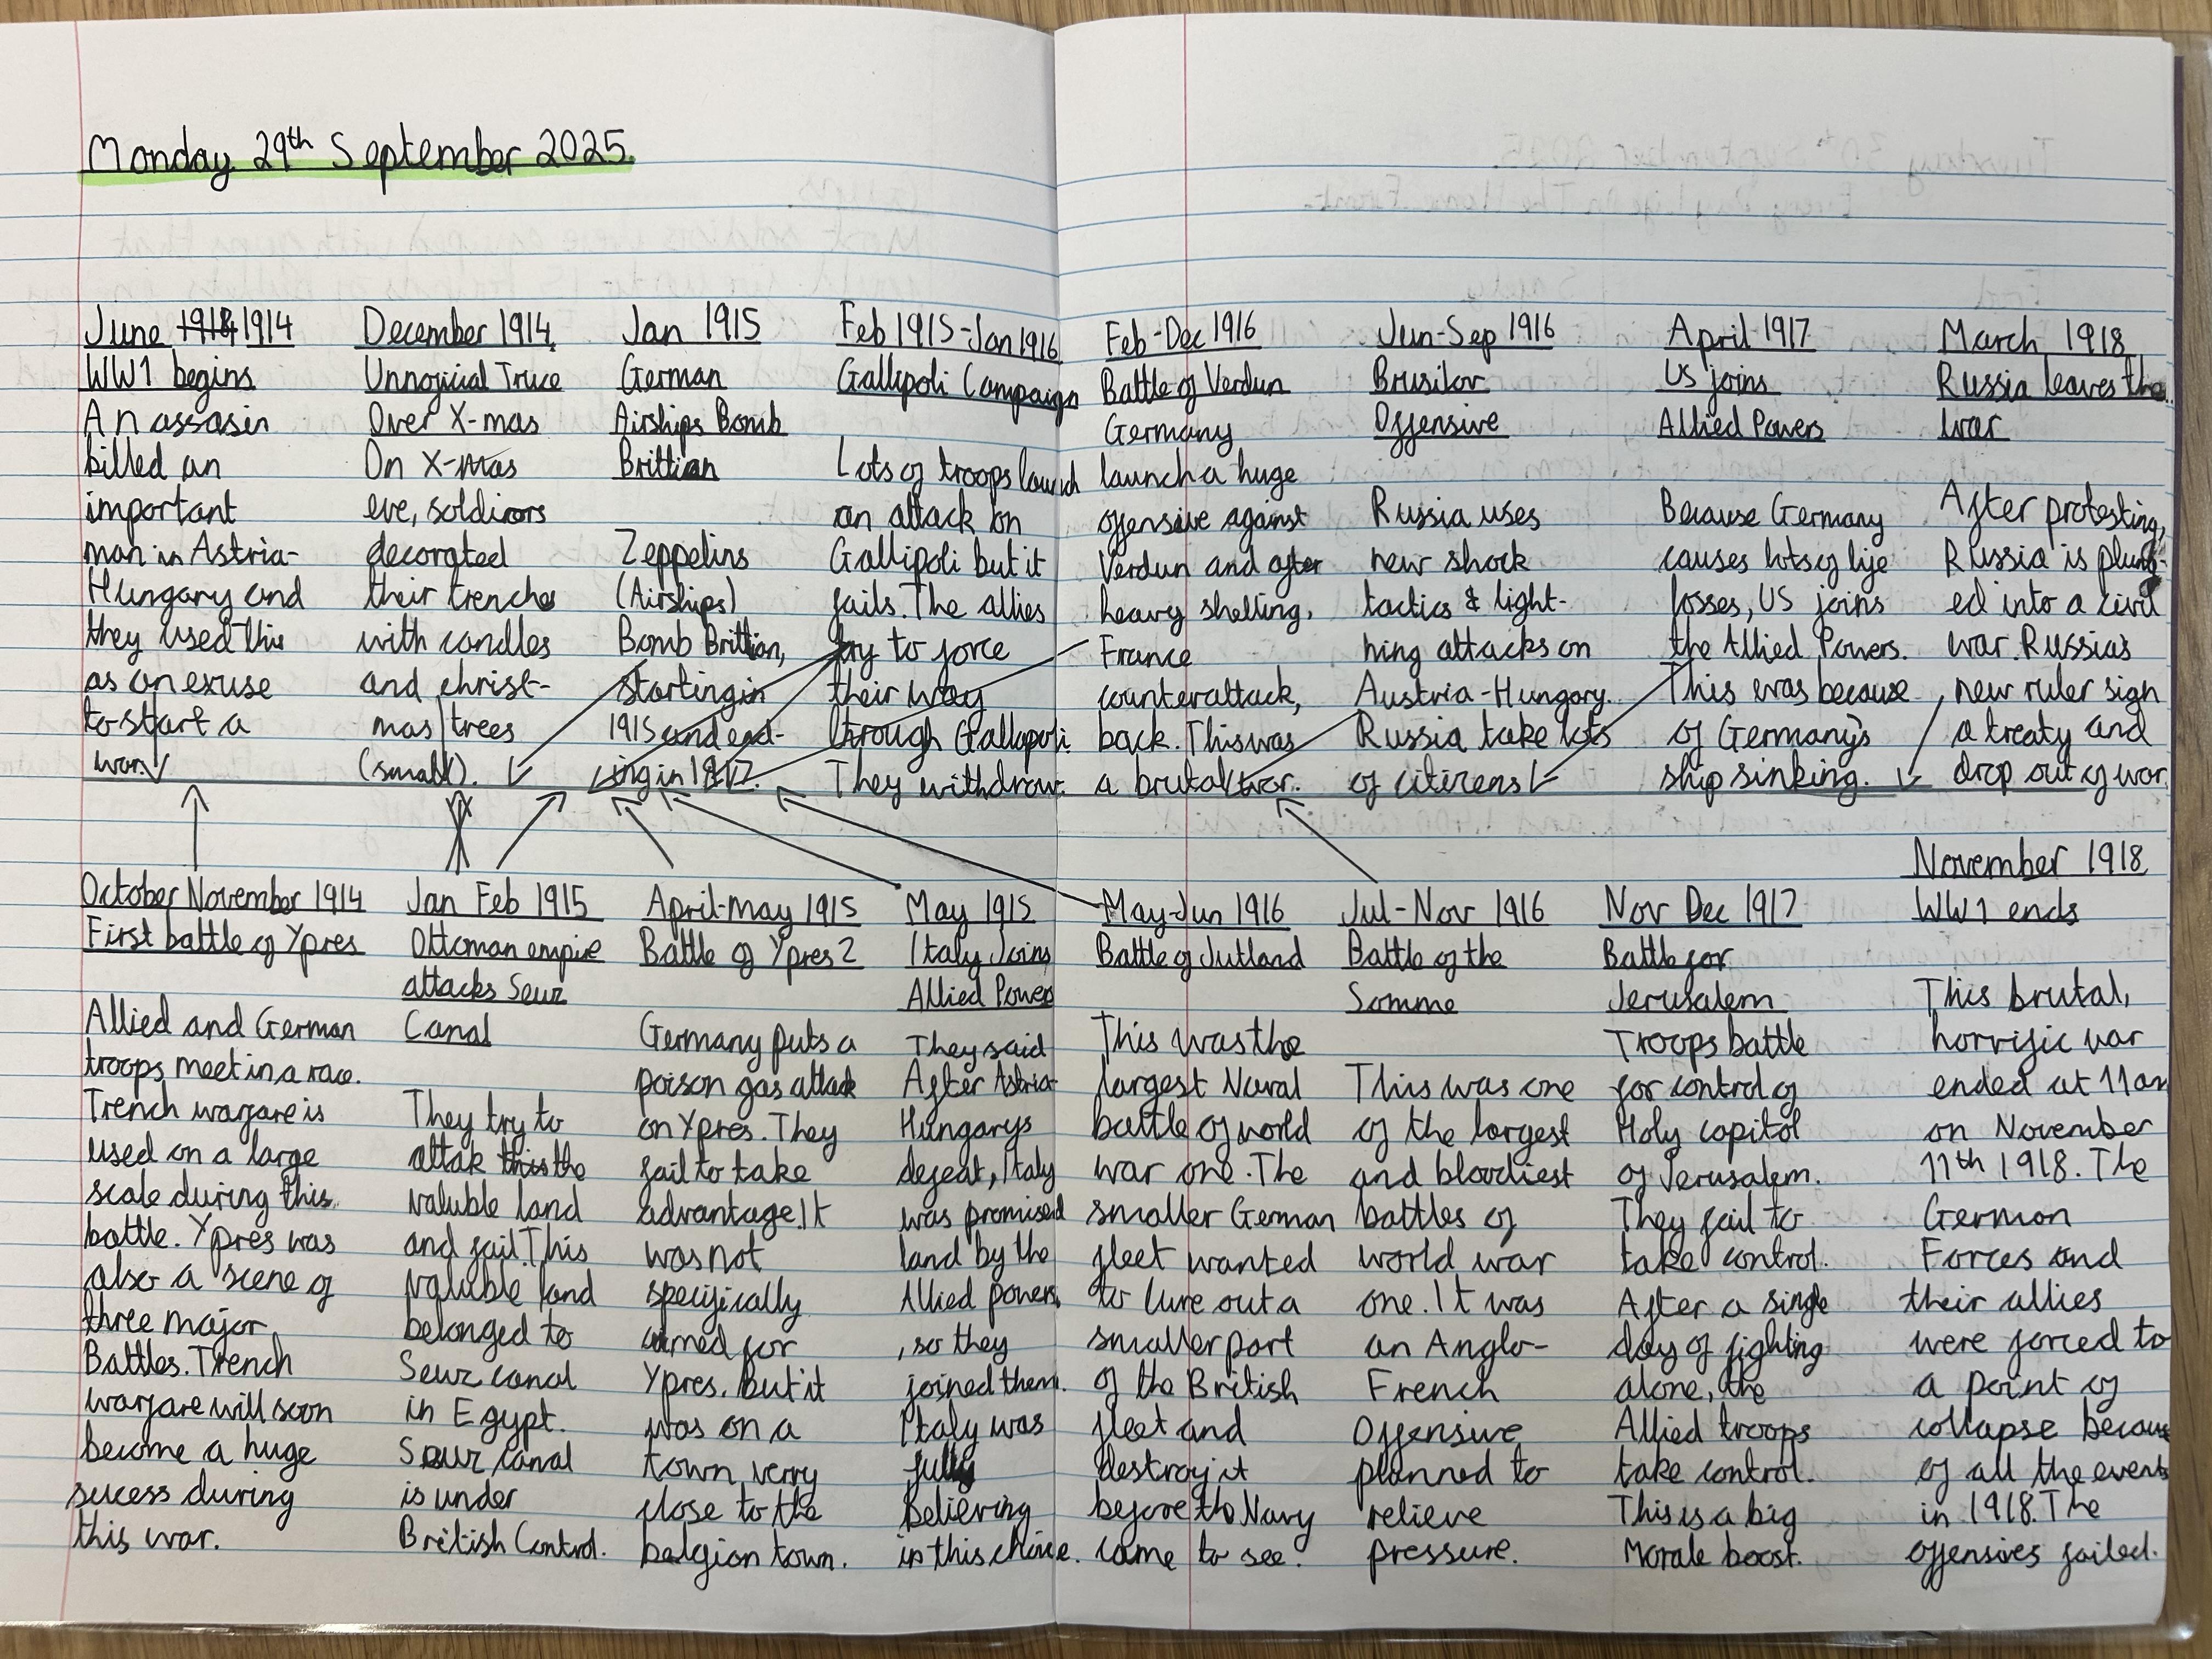 Monday 29th September 2025.
June 1918 1914
WW1 begins
An assasin
killed an
important
man in Astria-
Hungary and
they used this
as an exuse
to start a
war.
December 1914
Unnoficial Truce
Over X-mas
On X-mas
eve, soldirors
decorated
their trenches
with candles
and christ-
mas trees
(small).
Jan 1915
German
Airships Bomb
Brittian
Zeppelins
(Airships)
Bomb Brittian,
starting in
1915 and end-
ing in 1917.
Feb 1915-Jan 1916
Gallipoli Campaign
Lots of troops launch
an attack on
Gallipoli but it
fails. The allies
try to force
their way
through Gallapoli.
They withdraw.
Feb-Dec 1916
Battle of Verdun
Germany
launch a huge
offensive against
Verdun and after
heavy shelling,
France
counterattack,
back. This was
a brutal war.
Jun-Sep 1916
Brusilov
Offensive
Russia uses
new shock
tactics & light-
ning attacks on
Austria-Hungary.
Russia take lots
of citizens
April 1917
US joins
Allied Powers
Because Germany
causes lots of life
losses, US joins
the Allied Powers.
This was because
of Germany's
ship sinking.
March 1918
Russia leaves the
War
After protesting,
Russia is plung-
ed into a civil
war. Russia's
new ruler sign
a treaty and
drop out of war.
October November 1914
First battle of Ypres
Allied and German
troops meet in a race.
Trench warfare is
used on a large
scale during this
battle. Ypres was
also a scene of
three major
Battles. Trench
warfare will soon
become a huge
sucess during
this war.
Jan Feb 1915
Ottoman empire
attacks Seuz
Canal
They try to
attak this the
valuble land
and fail. This
valuble land
belonged to
Seuz canal
in Egypt.
Seuz canal
is under
British Control.
April-May 1915
Battle of Ypres 2
Germany puts a
poison gas attack
on Ypres. They
fail to take
advantage. It
was not
specifically
aimed for
Ypres, but it
was on a
town verry
close to the
belgian town.
May 1915
Italy Joins
Allied Power
They said
After Astria-
Hungarys
defeat, Italy
was promised
land by the
Allied powers
, so they
joined them.
Italy was
fully
Believing
in this choice.
May-Jun 1916
Battle of Jutland
This was the
largest Naval
battle of world
war one. The
smaller German
fleet wanted
to lure out a
smaller part
of the British
fleet and
destroy it
before the Navy
came to see.
Jul-Nov 1916
Battle of the
Somme
This was one
of the largest
and bloodiest
battles of
world war
one. It was
an Anglo-
French
Offensive
planned to
relieve
pressure.
Nov Dec 1917
Battle for
Jerusalem
Troops battle
for control of
Holy capitol
of Jerusalem.
They fail to
take control.
After a single
day of fighting
alone, the
Allied troops
take control.
This is a big
Morale boost.
November 1918
WW1 ends
This brutal,
horrific war
ended at 11am
on November
11th 1918. The
German
Forces and
their allies
were forced to
a point of
collapse because
of all the events
in 1918. The
offensives failed.